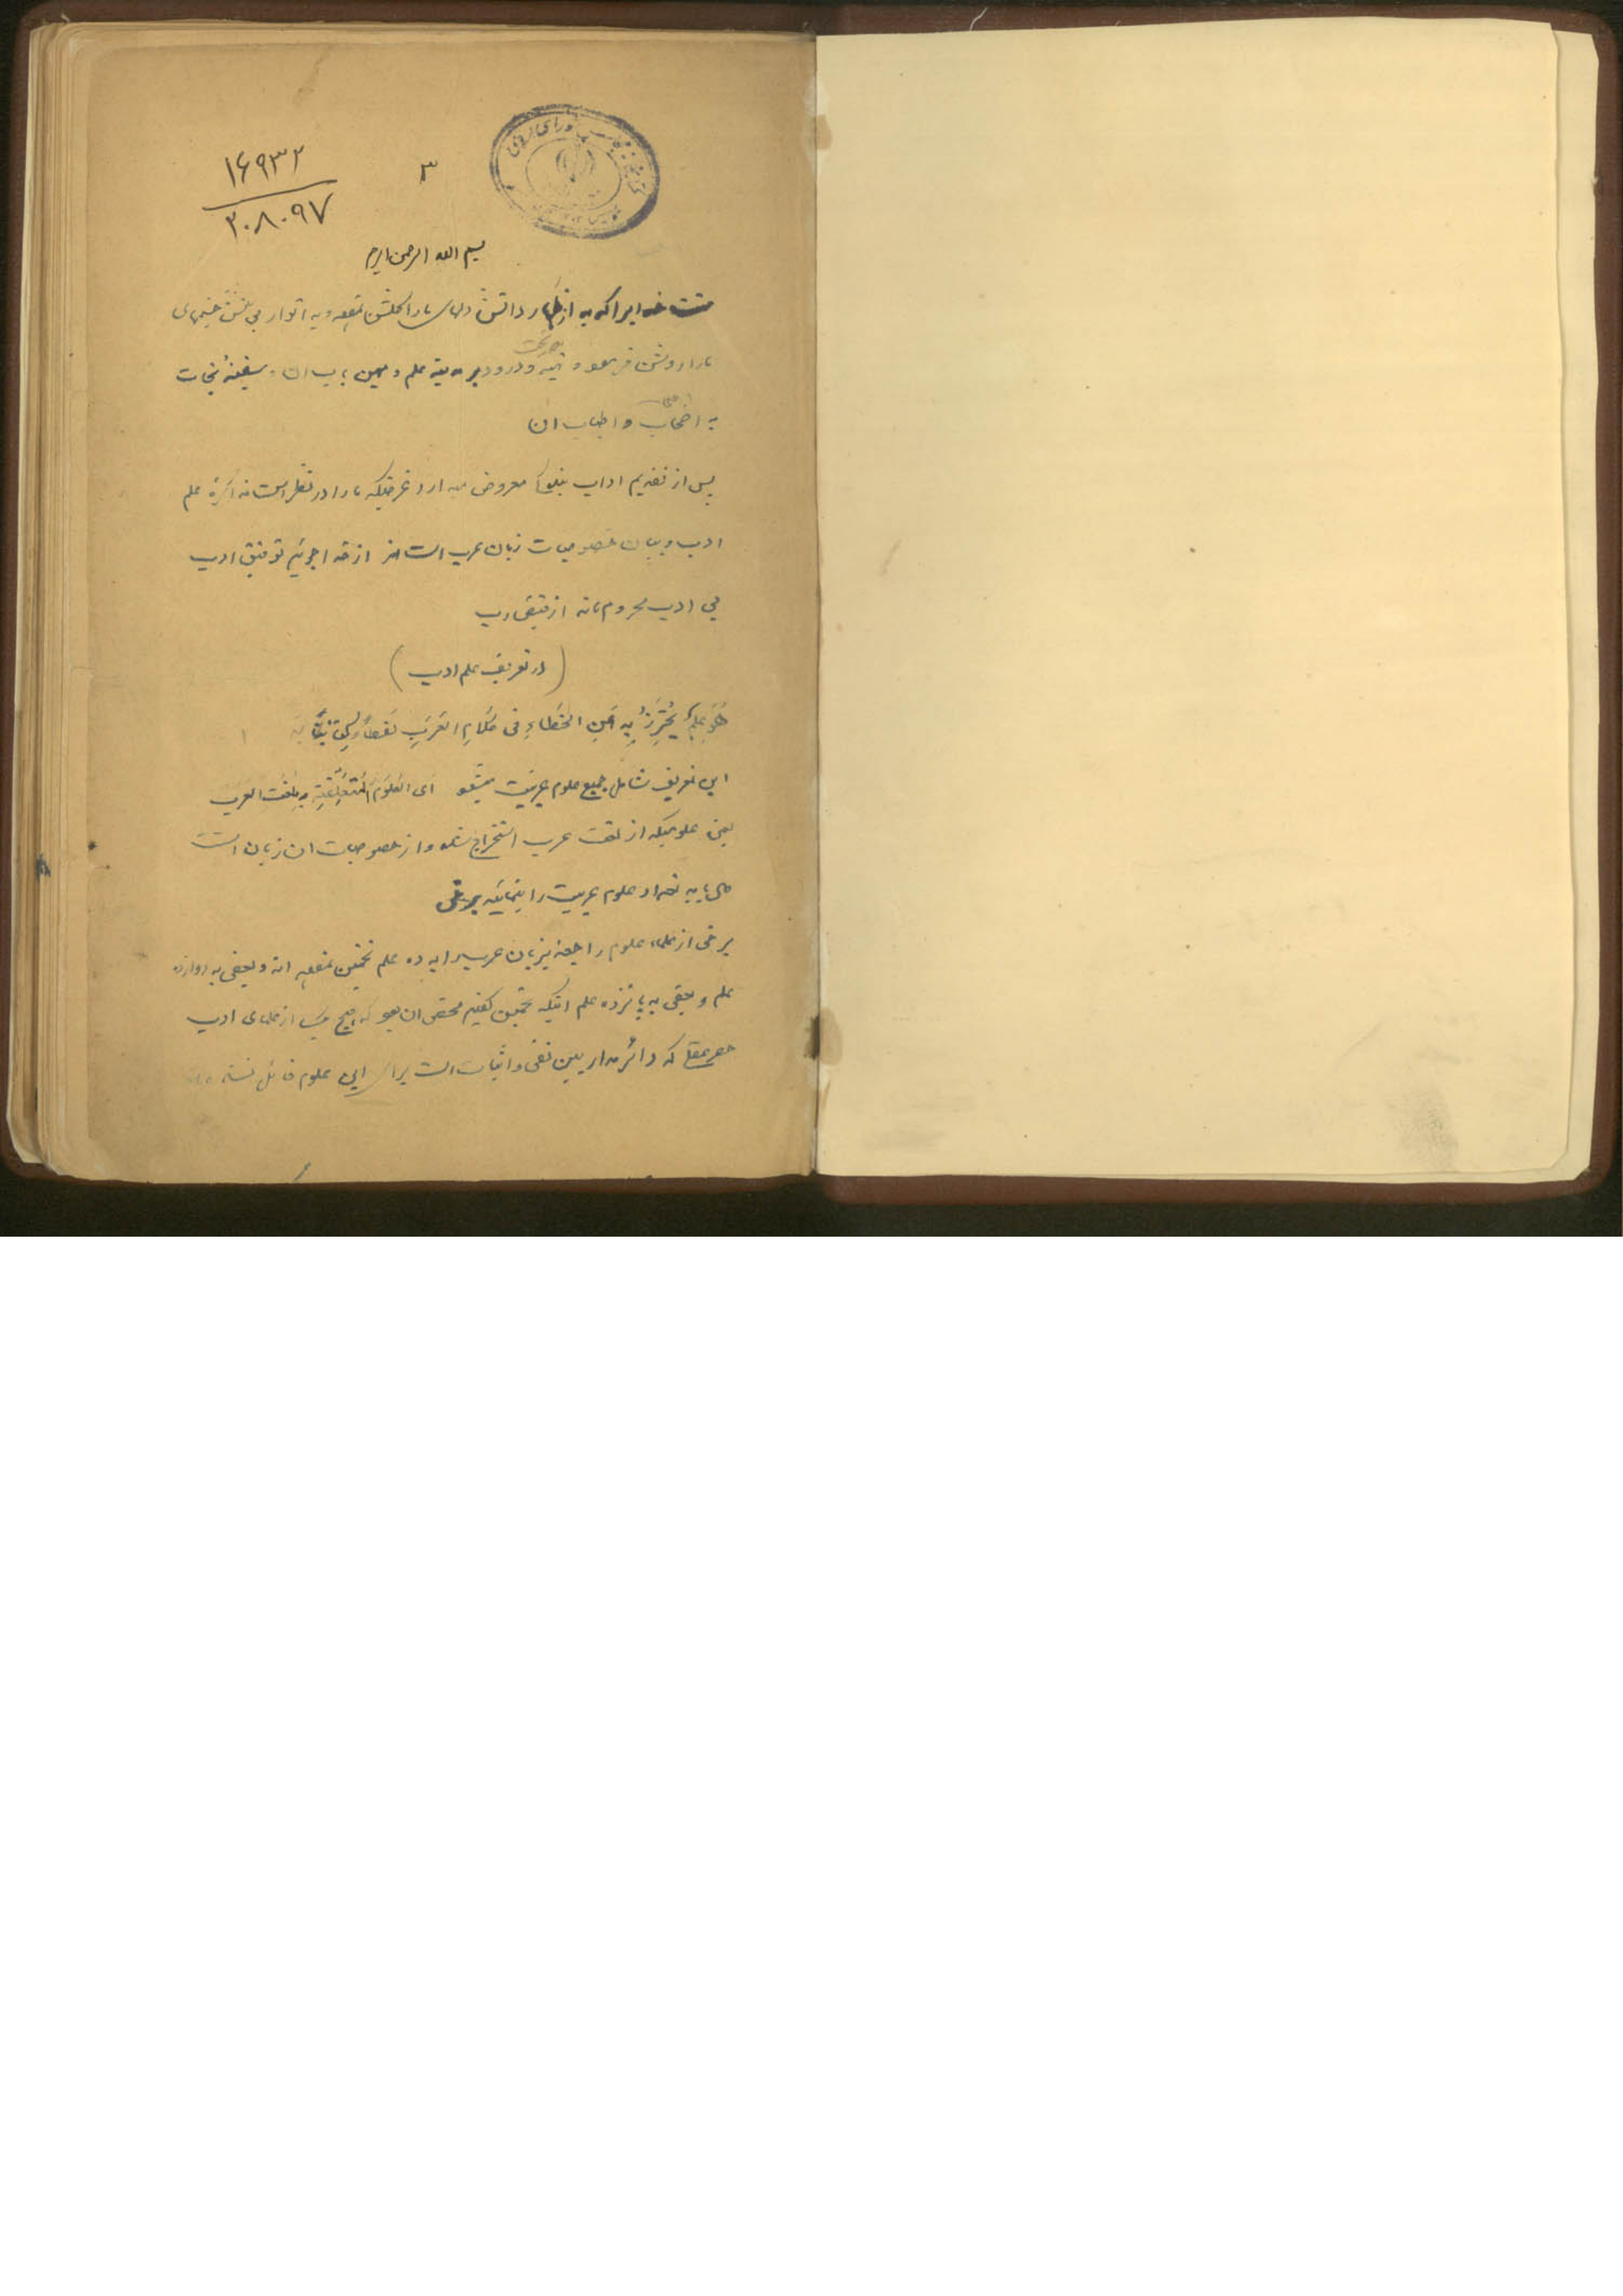 ۱۶۹۳۲
۲۰۸۰۹۷
۳
بسم الله الرحمن الرحیم
منت خدایرا که به ازهار دانش دلهای ما را گلشن نموده و به انوار بینش چشمهای
ما را روشن فرموده و تحیت و درود بر مدینه علم و مهین باب ان و سفینهٔ نجات
به اصحاب و احباب ان
پس از تقدیم اداب معروض میدارد غرضیکه ما را در نظر است مذاکرهٔ علم
ادب و بیان خصوصیات زبان عرب است از خدا جوئیم توفیق ادب
بی ادب محروم ماند از فیض رب
(در تعریف علم ادب)
هُوَ عِلمٌ یُحتَرَزُ بِهِ عَنِ الخَطَاءِ فی کَلامِ العَرَبِ لَفظاً وَ کِتابَةً
این تعریف شامل جمیع علوم عربیت میشود ای العُلُوم المُتَعَلِّقَةِ بِلُغَتِ العَرَب
یعنی علومیکه از لغت عرب استخراج شده و از خصوصیات ان زبان است
حال باید تعداد علوم عربیت را بنمائیم برخی
برخی از علماء علوم راجعه بزبان عرب را به ده علم تخمین نموده اند و بعضی به دوازده
علم و بعضی به پانزده علم اینکه تخمین گفتیم محض ان بود که هیچ یک از علمای ادب
حصر عقلی که دائر مدار بین نفی و اثبات است برای این علوم قائل نشده